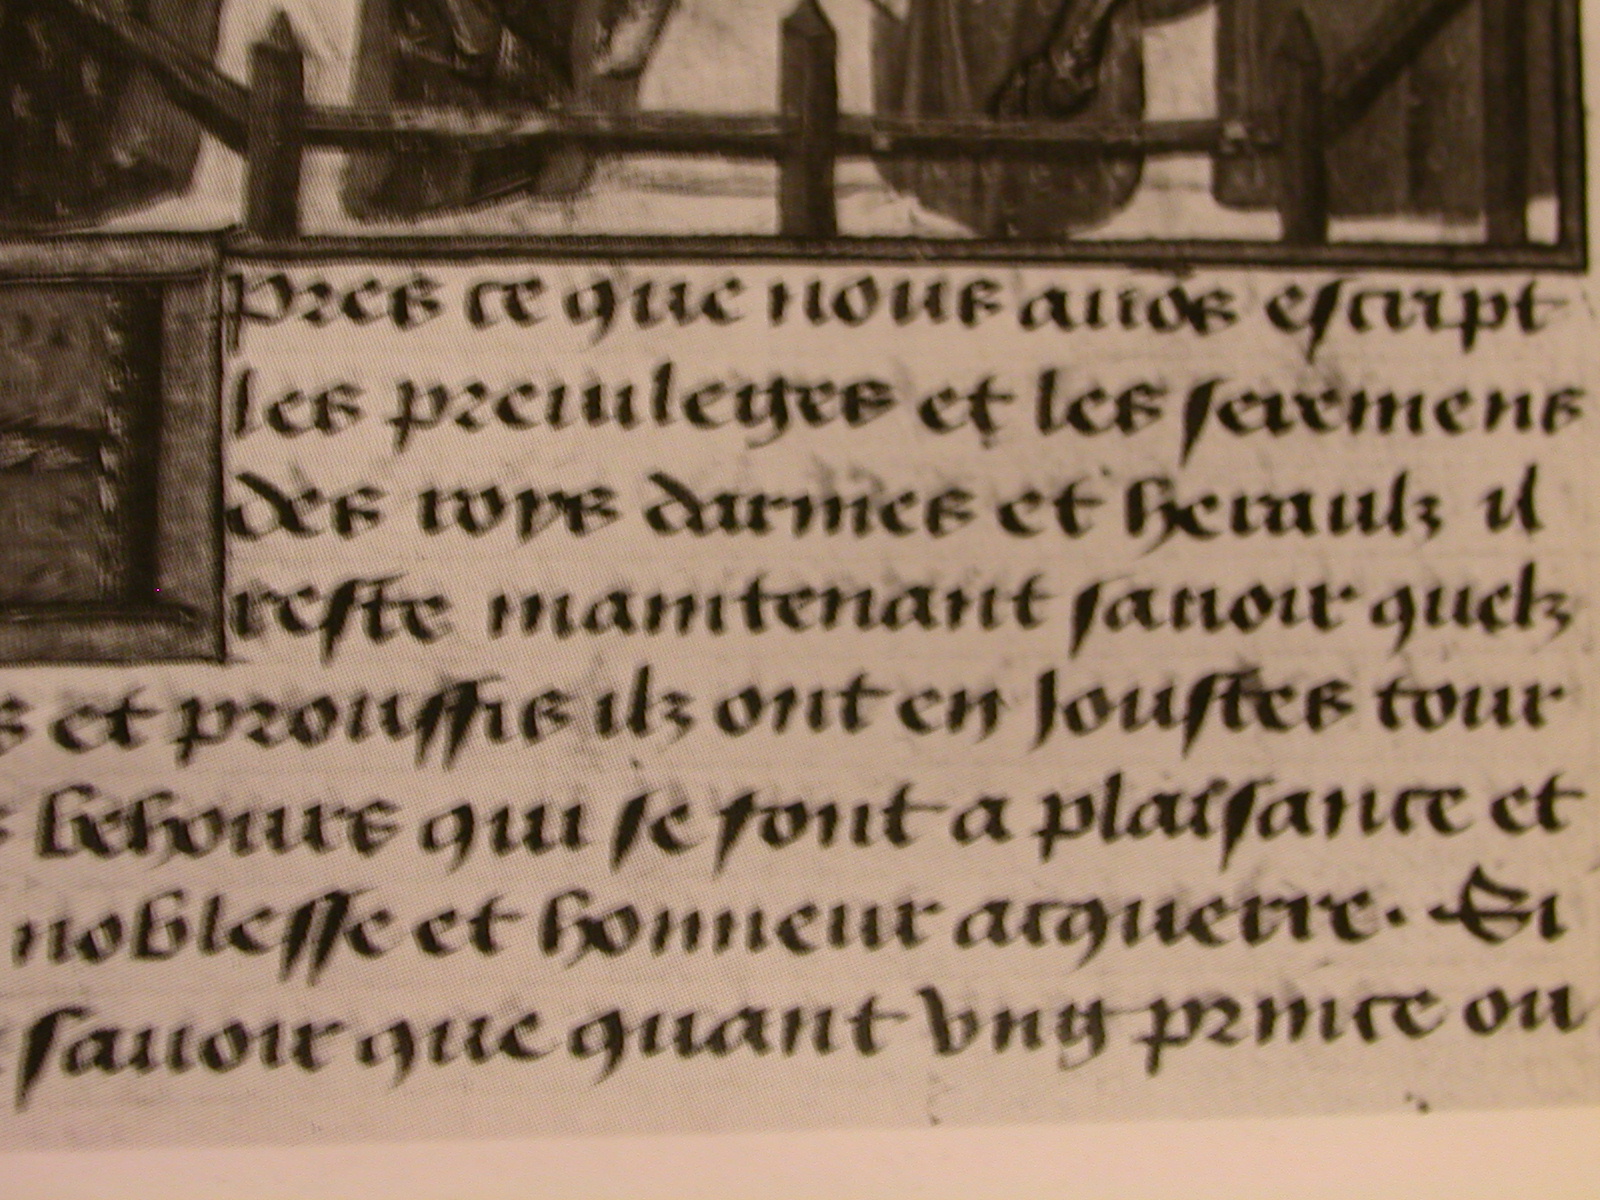 pres ce que nous auōs escript
les preiuileges et les seremens
des roys darmes et heraulz il
reste maintenant sauoir quelz
s et prouffis ilz ont en Joustes tour
behours qui se font a plaisance et
noblesse et honneur acquerre. Si
sauoir que quant vng prince ou